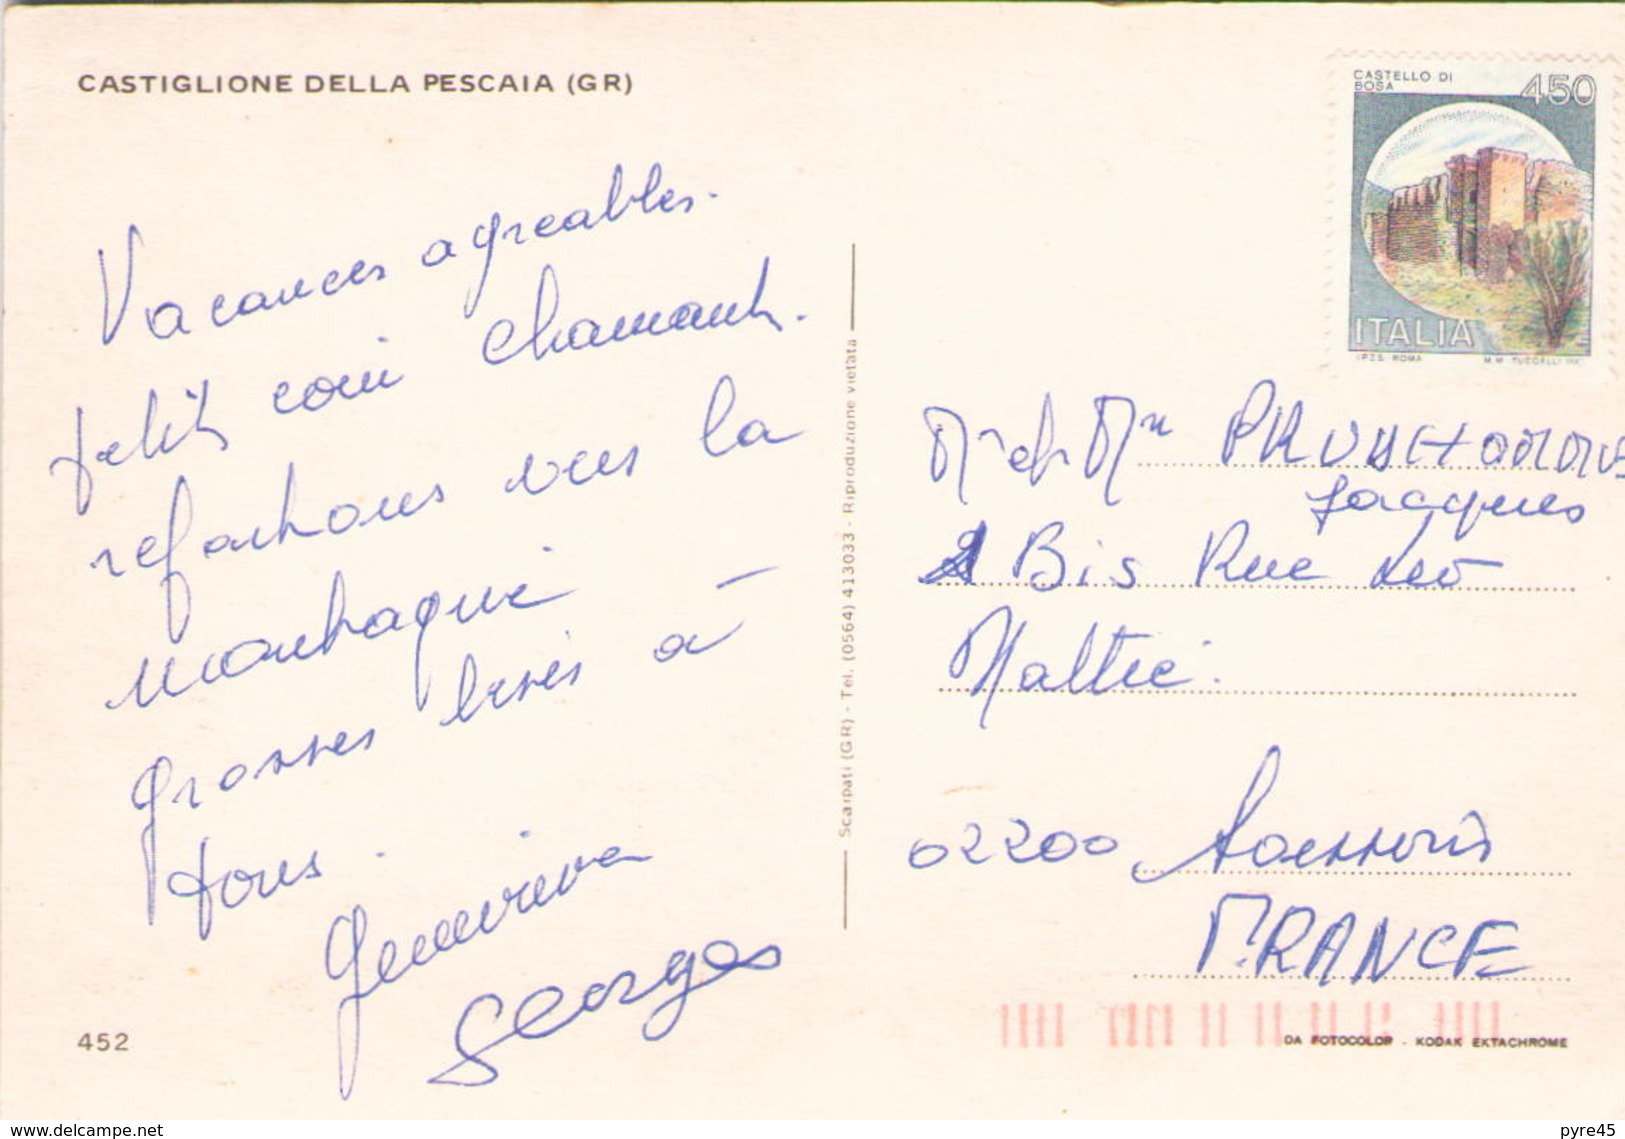 CASTIGLIONE DELLA PESCAIA (GR)
CASTELLO DI
BOSA
450
ITALIA
I.P.Z.S. ROMA
Vacances agreables.
petit coin charmant.
repartons vers la
montagne
grosses bises à
tous.
Geneviève
Georges
452
Scarpati (GR) - Tel. (0564) 413033 - Riproduzione vietata
Mr et Mme PRUDHOMME
Jacques
Bis Rue Leo
02200 Soissons
FRANCE
DA FOTOCOLOR - KODAK EKTACHROME
www.delcampe.net
pyre45